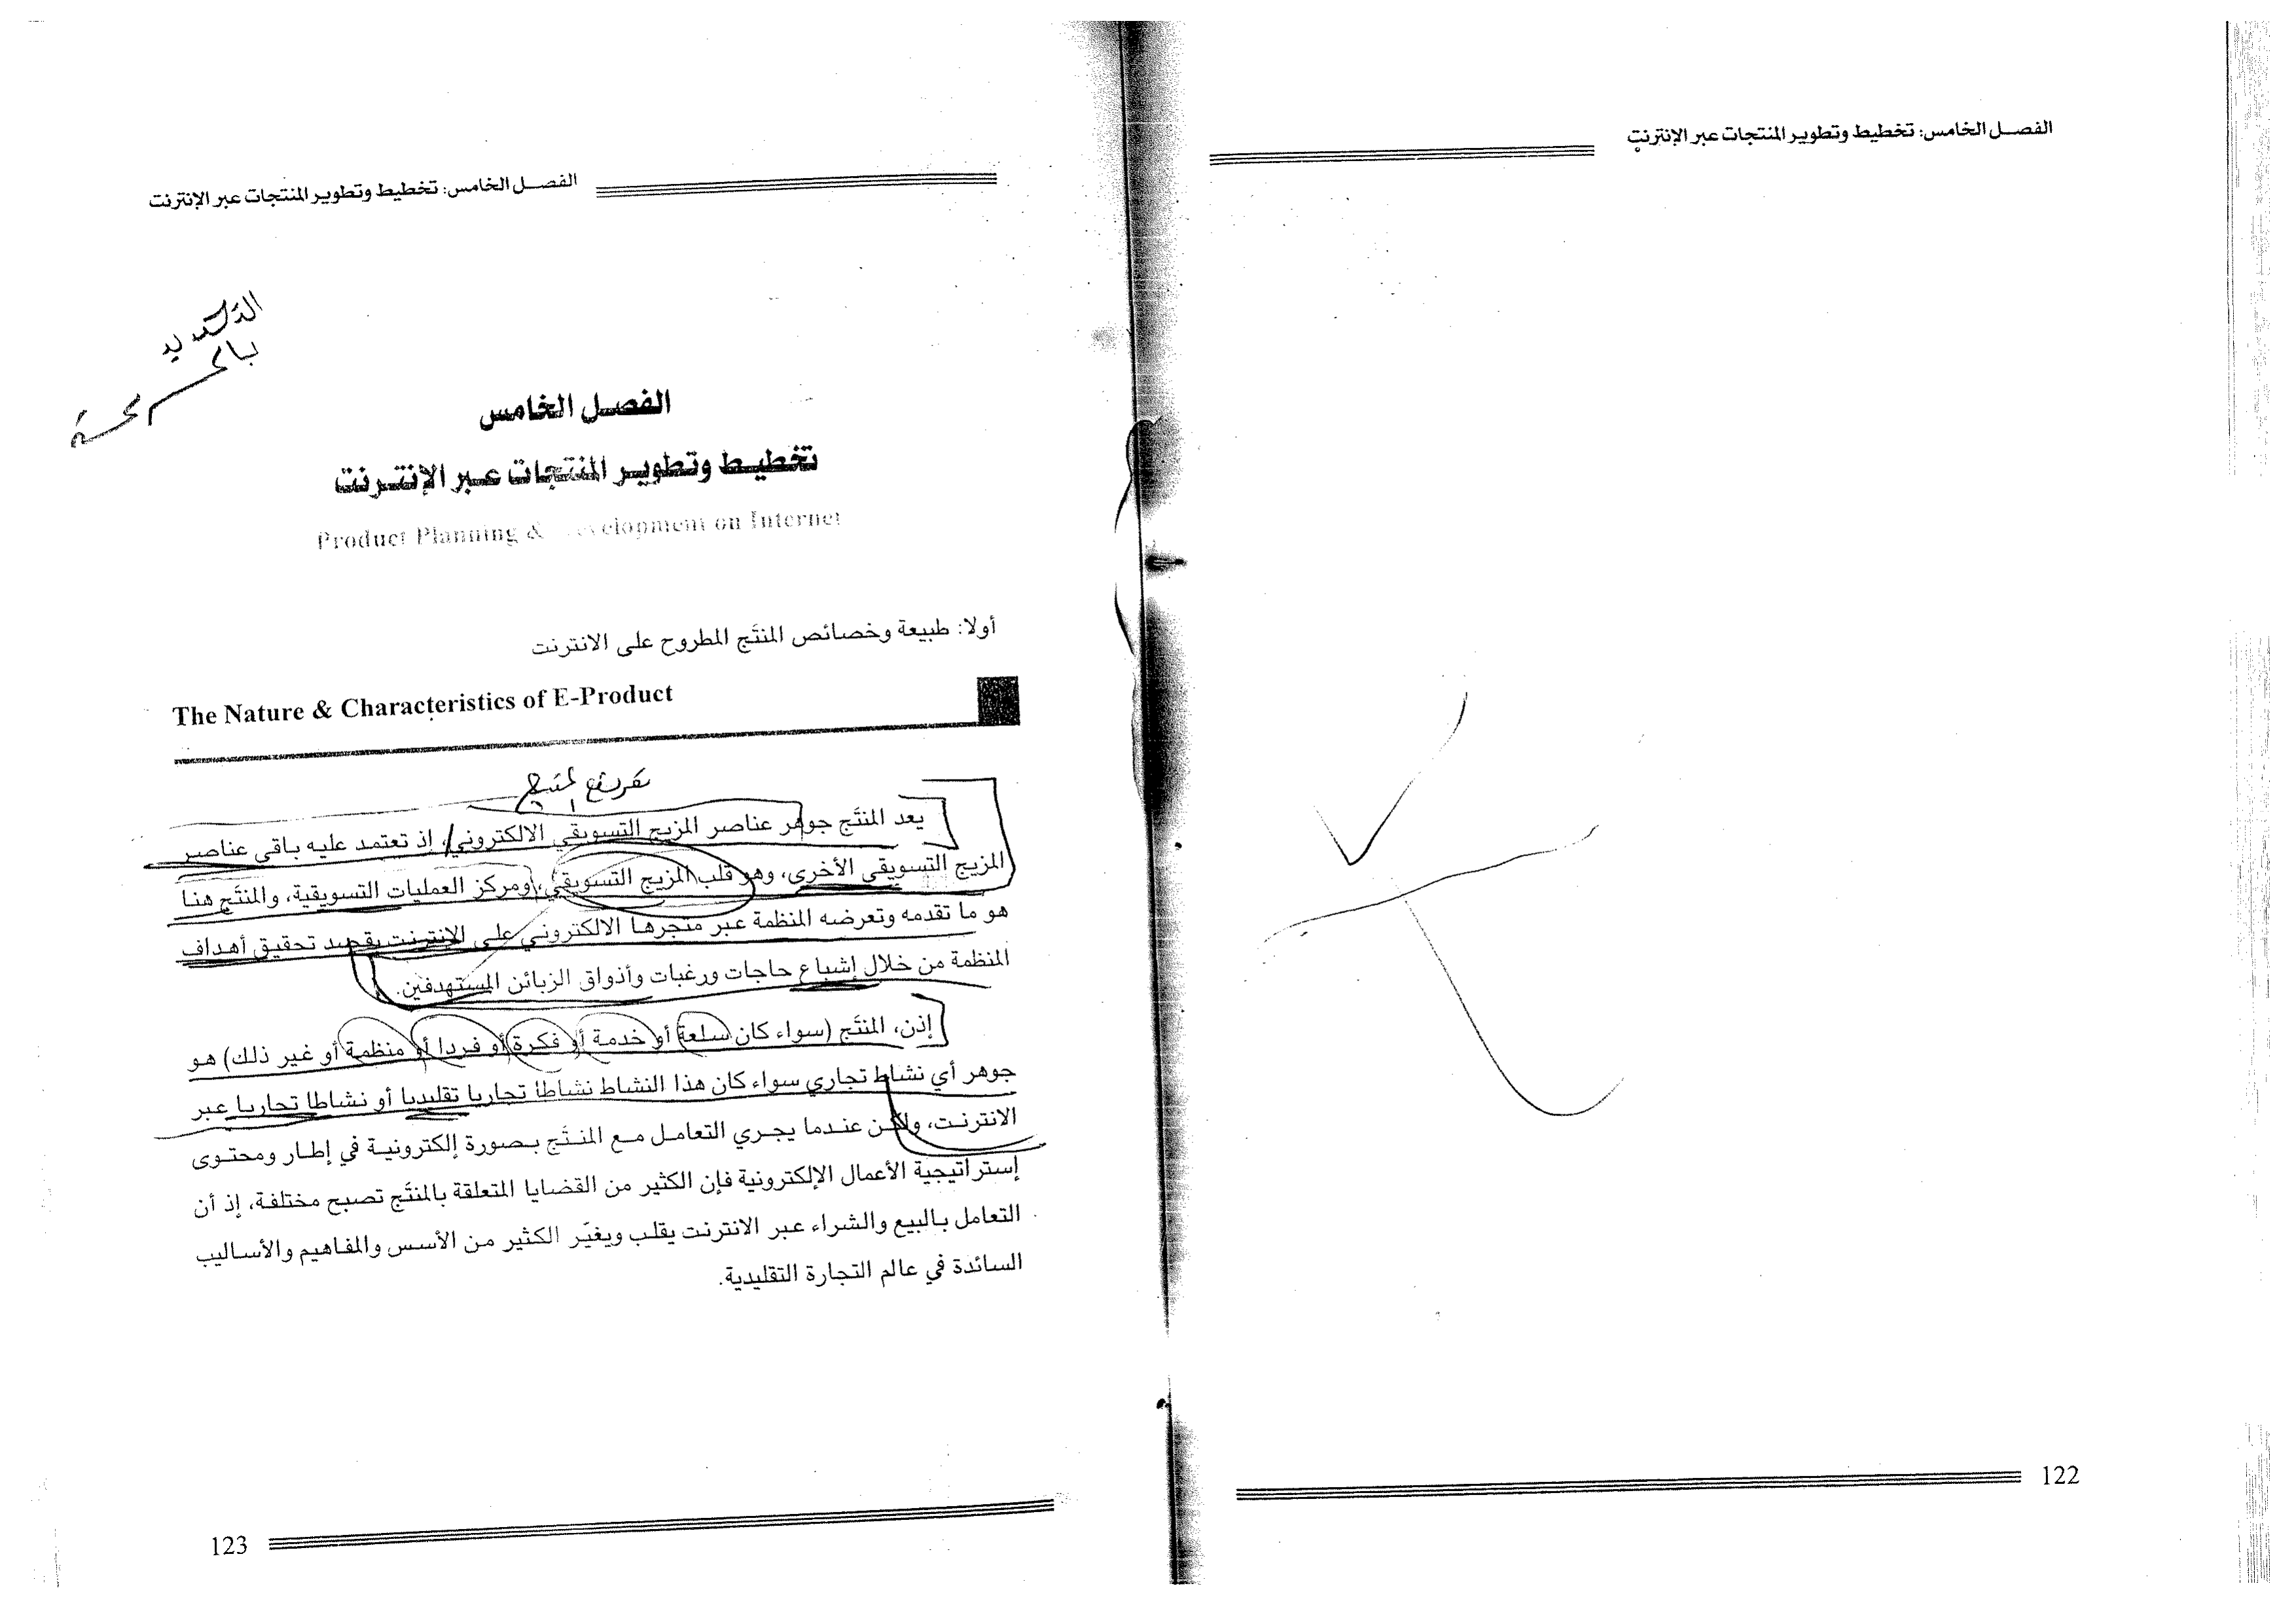 الفصل الخامس: تخطيط وتطوير المنتجات عبر الإنترنت
122
الفصل الخامس: تخطيط وتطوير المنتجات عبر الإنترنت
الفصل الخامس
تخطيط وتطوير المنتجات عبر الإنترنت
Product Planning & Development on Internet
أولا: طبيعة وخصائص المنتَج المطروح على الانترنت
The Nature & Characteristics of E-Product
تعريف المنتج
يعد المنتَج جوهر عناصر المزيج التسويقي الالكتروني، إذ تعتمد عليه باقي عناصر
المزيج التسويقي الأخرى، وهو قلب المزيج التسويقي، ومركز العمليات التسويقية، والمنتَج هنا
هو ما تقدمه وتعرضه المنظمة عبر متجرها الالكتروني على الإنترنت بقصد تحقيق أهداف
المنظمة من خلال إشباع حاجات ورغبات وأذواق الزبائن المستهدفين.
إذن، المنتَج (سواء كان سلعة أو خدمة أو فكرة أو فردا أو منظمة أو غير ذلك) هو
جوهر أي نشاط تجاري سواء كان هذا النشاط نشاطا تجاريا تقليديا أو نشاطا تجاريا عبر
الانترنت، ولكن عندما يجري التعامل مع المنتَج بصورة إلكترونية في إطار ومحتوى
إستراتيجية الأعمال الإلكترونية فإن الكثير من القضايا المتعلقة بالمنتَج تصبح مختلفة، إذ أن
التعامل بالبيع والشراء عبر الانترنت يقلب ويغيّر الكثير من الأسس والمفاهيم والأساليب
السائدة في عالم التجارة التقليدية.
123